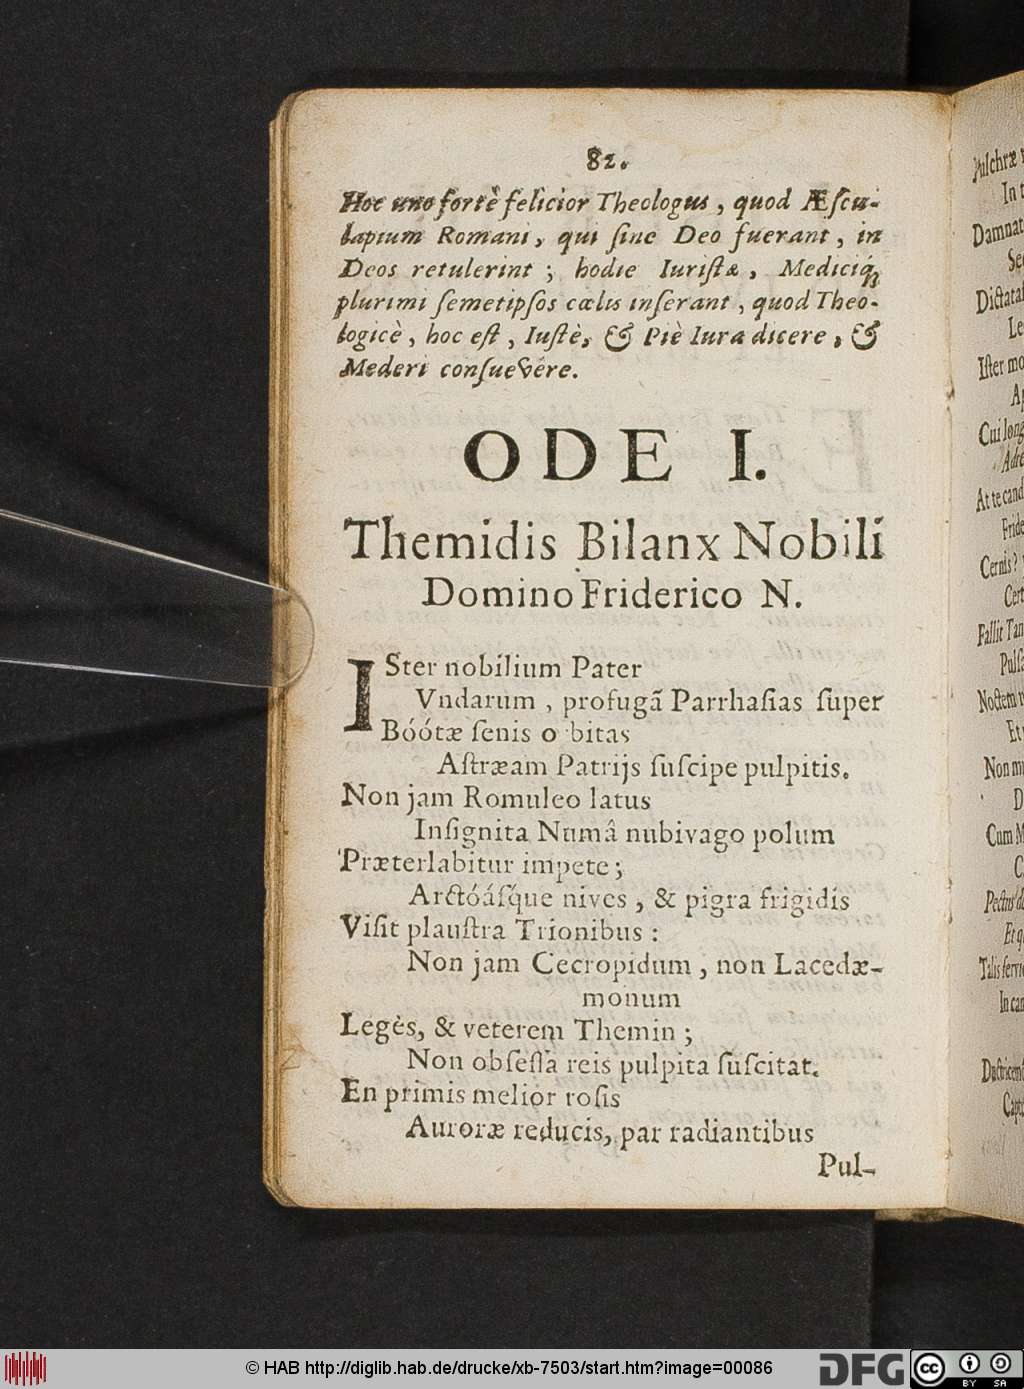 82.
Hoc uno fortè felicior Theologus, quod Æſcu-
lapium Romani, qui ſine Deo fuerant, in
Deos retulerint; hodie Iuriſtæ, Mediciq́;
plurimi ſemetipſos cœlis inſerant, quod Theo-
logicè, hoc eſt, Iuſtè, & Piè Iura dicere, &
Mederi conſuevére.
ODE I.
Themidis Bilanx Nobili
Domino Friderico N.
ISter nobilium Pater
Vndarum, profugã Parrhaſias ſuper
Bóótæ ſenis o bitas
Aſtræam Patrijs ſuſcipe pulpitis.
Non jam Romuleo latus
Inſignita Numâ nubivago polum
Præterlabitur impete;
Arctóáſq́ue nives, & pigra frigidis
Viſit plauſtra Trionibus:
Non jam Cecropidum, non Lacedæ-
monum
Legès, & veterem Themin;
Non obſeſſa reis pulpita ſuſcitat.
En primis melior roſis
Auroræ reducis, par radiantibus
Pul-
Pulchræ
In
Damnat
Dictata
Iſter mo
Cui long
At te cand
Cernis?
Fallit Tan
Noctem
Et
Non mu
Cum M
Pectus
Et q
© HAB http://diglib.hab.de/drucke/xb-7503/start.htm?image=00086
DFG
cc
BY SA